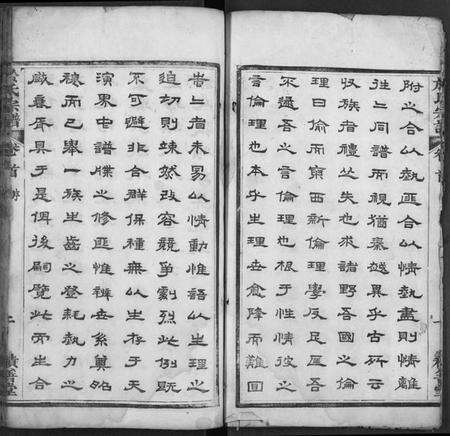 附之合以熱匪合以情熱盡則情離
往往同譜而視猶秦越異乎古所云
收族者禮失也求諸野吾國之倫
理日偷而西新倫理學反足匡吾
不逮吾之言倫理也根于性情彼之
言倫理也本乎生理世愈降而難囿
者未易以情動惟語以生理之
迫切則竦然改容競爭劇烈此例既
不可避非合群保種無以生存于天
演界中譜牒之修匪惟辨世系奠昭
穆而已舉一族生齒之登耗熱力之
胥具于是俾後嗣覽此而生合
氏宗譜 卷首
二